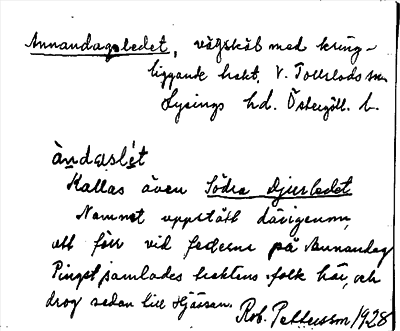 Annandagsledet, vägskäl med kring-
liggande trakt. V. Tollstads sn
Lysings hd. Östergötl. l.
ándəslét
Kallas även Södra Djurledet
Namnet uppstått därigenom,
att förr vid fester på Annandag
Pingst samlades traktens folk här, och
drog sedan till Hjässan. Rob. Pettersson 1928